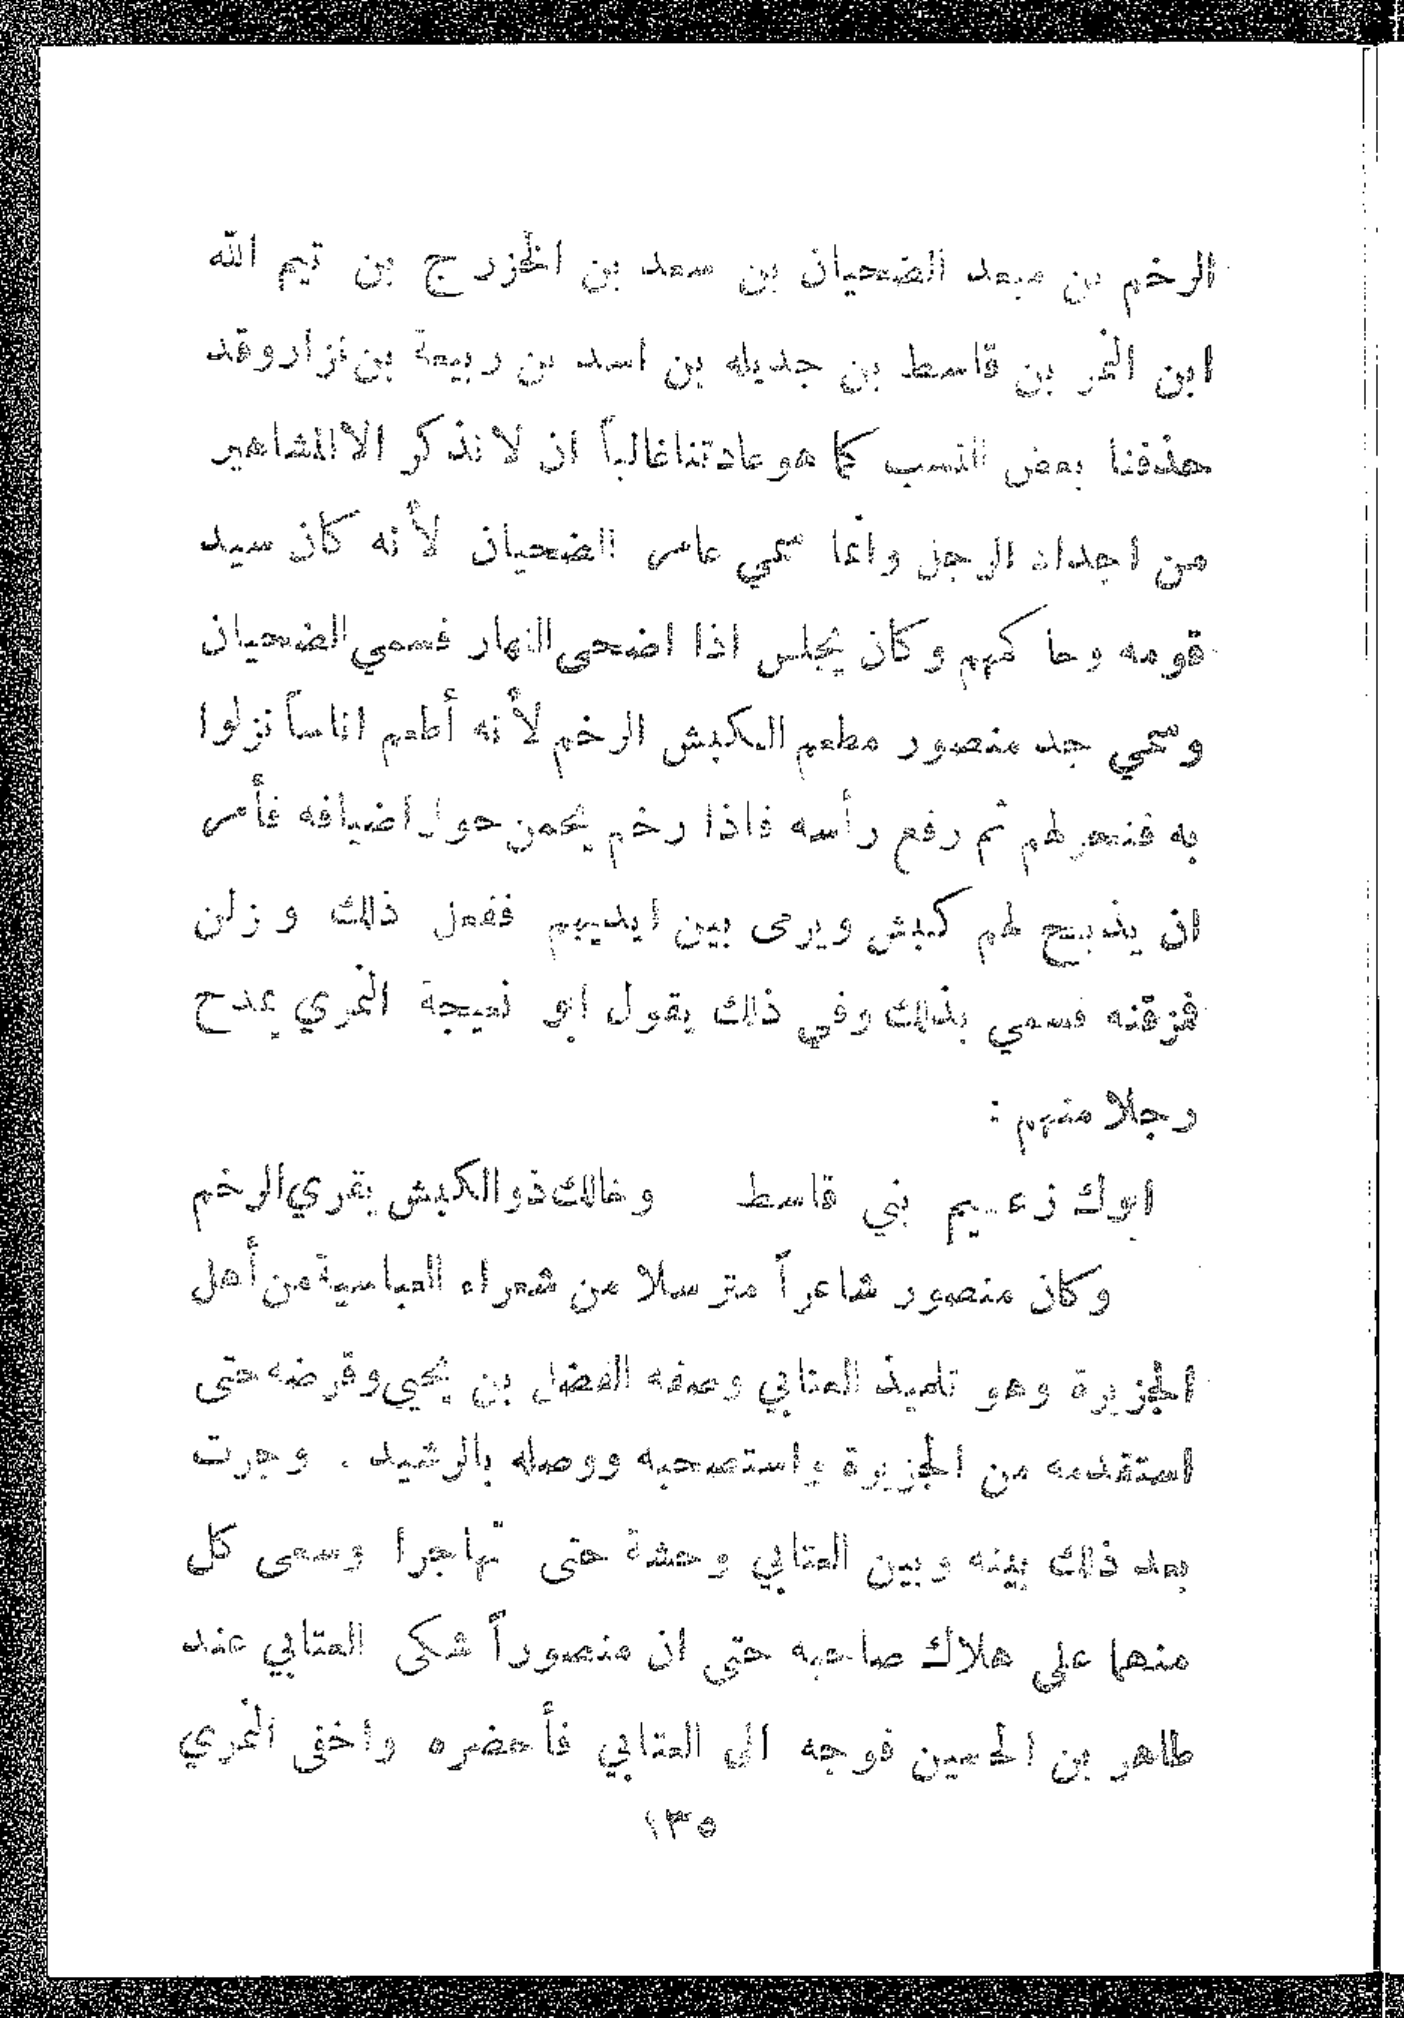 الرخم بن سعد الضحيان بن سعد بن الخزرج بن تيم الله
ابن النمر بن قاسط بن جديله بن اسد بن ربيعة بن نزار وقد
حذفنا بعض النسب كما هو عادتنا غالباً ان لا نذكر الا المشاهير
من اجداد الرجل وانما سمي عامر الضحيان لأنه كان سيد
قومه وحاكمهم وكان يجلس اذا اضحى النهار فسمي الضحيان
وسمي جد منصور مطعم الكبش الرخم لأنه أطعم اناساً نزلوا
به فنحر لهم ثم رفع رأسه فاذا رخم يحمن حول اضيافه فأمر
ان يذبح لهم كبش ويرمى بين ايديهم ففعل ذلك ونزلن
فمزقنه فسمي بذلك وفي ذلك يقول ابو نعيجة النمري يمدح
رجلا منهم :
ابوك زعيم بني قاسط وخالك ذو الكبش يقري الرخم
وكان منصور شاعراً مترسلا من شعراء العباسية من أهل
الجزيرة وهو تلميذ العتابي وصفه الفضل بن يحيى وقرضه حتى
استقدمه من الجزيرة واستصحبه ووصله بالرشيد . وجرت
بعد ذلك بينه وبين العتابي وحشة حتى تهاجرا وسعى كل
منهما على هلاك صاحبه حتى ان منصوراً شكى العتابي عند
طاهر بن الحسين فوجه الى العتابي فأحضره واخفى النمري
١٣٥